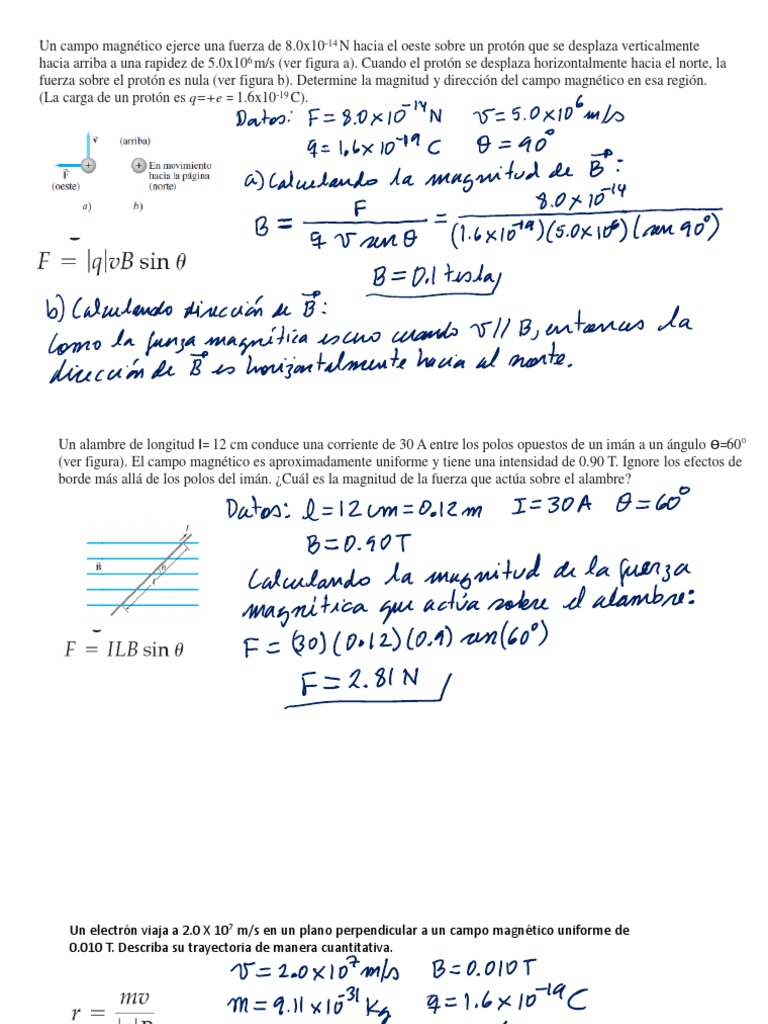 Un campo magnético ejerce una fuerza de 8.0x10⁻¹⁴ N hacia el oeste sobre un protón que se desplaza verticalmente
hacia arriba a una rapidez de 5.0x10⁶ m/s (ver figura a). Cuando el protón se desplaza horizontalmente hacia el norte, la
fuerza sobre el protón es nula (ver figura b). Determine la magnitud y dirección del campo magnético en esa región.
(La carga de un protón es q=+e = 1.6x10⁻¹⁹ C).
Datos: F = 8.0 x 10⁻¹⁴ N   v = 5.0x10⁶ m/s
q = 1.6 x 10⁻¹⁹ C   θ = 90°
v (arriba)
F (oeste)
+ +
En movimiento
hacia la página
(norte)
a) b)
a) Calculando la magnitud de B:
B = F / (q v sen θ) = 8.0 x 10⁻¹⁴ / ((1.6 x 10⁻¹⁹)(5.0x10⁶)(sen 90°))
F = |q|vB sin θ
B = 0.1 teslas
b) Calculando dirección de B:
Como la fuerza magnética es cero cuando v // B, entonces la
dirección de B es horizontalmente hacia al norte.
Un alambre de longitud l= 12 cm conduce una corriente de 30 A entre los polos opuestos de un imán a un ángulo ϴ=60°
(ver figura). El campo magnético es aproximadamente uniforme y tiene una intensidad de 0.90 T. Ignore los efectos de
borde más allá de los polos del imán. ¿Cuál es la magnitud de la fuerza que actúa sobre el alambre?
Datos: l = 12 cm = 0.12 m   I = 30 A   θ = 60°
B = 0.90 T
I
B
θ
Calculando la magnitud de la fuerza
magnética que actúa sobre el alambre:
F = ILB sin θ
F = (30)(0.12)(0.9) sen(60°)
F = 2.81 N
Un electrón viaja a 2.0 X 10⁷ m/s en un plano perpendicular a un campo magnético uniforme de
0.010 T. Describa su trayectoria de manera cuantitativa.
v = 2.0 x 10⁷ m/s   B = 0.010 T
m = 9.11 x 10⁻³¹ Kg   q = 1.6 x 10⁻¹⁹ C
r = mv